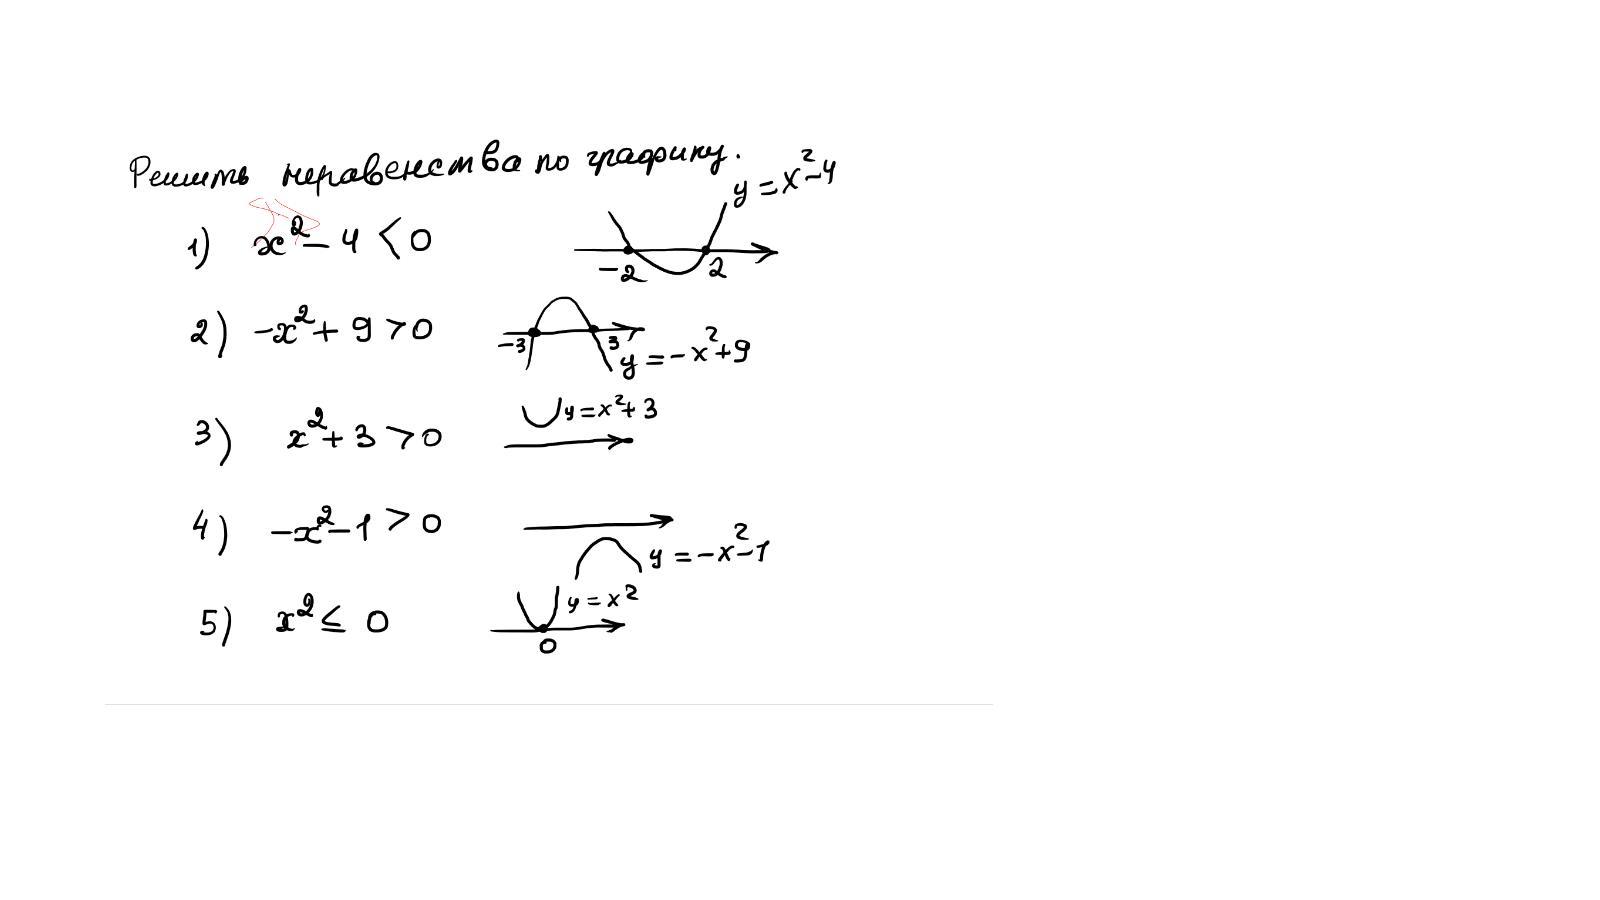 Решить неравенства по графику.
1) x² - 4 < 0 -2 2 y = x² - 4
2) -x² + 9 > 0 -3 3 y = -x² + 9
3) x² + 3 > 0 y = x² + 3
4) -x² - 1 > 0 y = -x² - 1
5) x² ≤ 0 y = x² 0